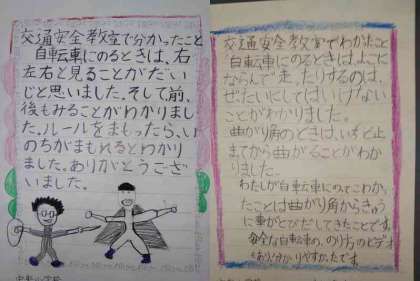 交通安全教室で分かったこと
自転車にのるときは、右
左右と見ることがだい
じと思いました。そして、前、
後もみることがわかりまし
た。ルールをまもったら、い
のちがまもれるとわかり
ました。ありがとうござ
いました。
交通安全教室でわかたこと
自転車にのるときは、よこに
ならんで走ったりするのは、
ぜったいにしてはいけない
ことがわかりました。
曲がり角のときは、いちど止
まってから曲がることがわか
りました。
わたしが自転車にのってこわかっ
たことは曲がり角からきゅう
に車がとびだしてきたことです。
安全な自転車の、のり方のビデオ
もあり、分かりやすかったです